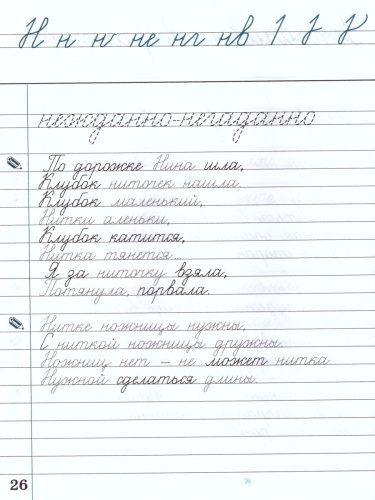 Н н н не нг нв 1
нежданно-негаданно
По дорожке Нина шла,
Клубок ниточек нашла.
Клубок маленький,
Нитки аленьки,
Клубок катится,
Нитка тянется...
Я за ниточку взяла,
Потянула, порвала.
Нитке ножницы нужны,
С ниткой ножницы дружны.
Ножниц нет – не может нитка
Нужной сделаться длины.
26